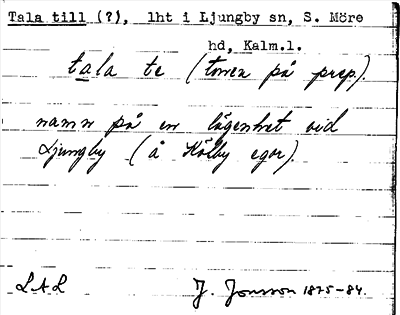 Tala till (?), lht i Ljungby sn, S. Möre
hd, Kalm.l.
tala te (tonen på prep.).
namn på en lägenhet vid
Ljungby (å Kölby egor).
L A L J. Jonsson 1875-84.